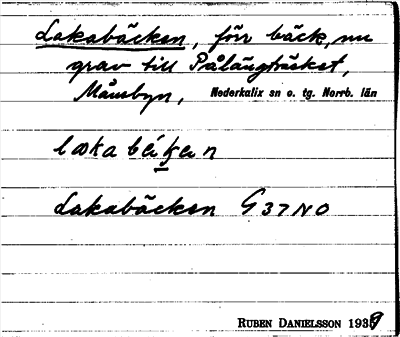 Lakabäcken, förr bäck, nu
grav till Pålängträsket,
Månsbyn, Nederkalix sn o. tg. Norrb. län
Lakabäcken G 37 NO
RUBEN DANIELSSON 1939